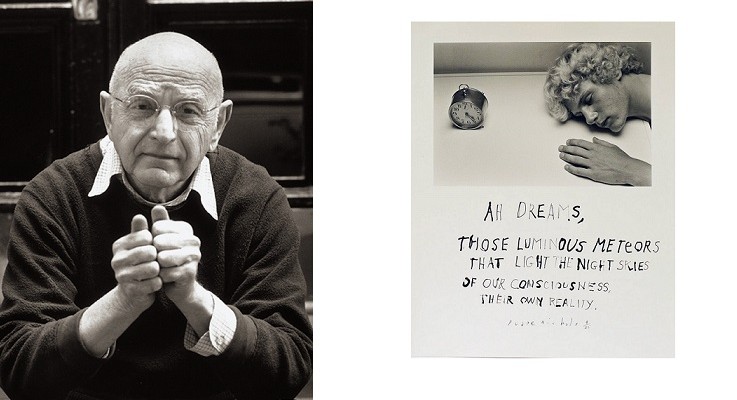 AH DREAMS,
THOSE LUMINOUS METEORS
THAT LIGHT THE NIGHT SKIES
OF OUR CONSCIOUSNESS,
THEIR OWN REALITY.